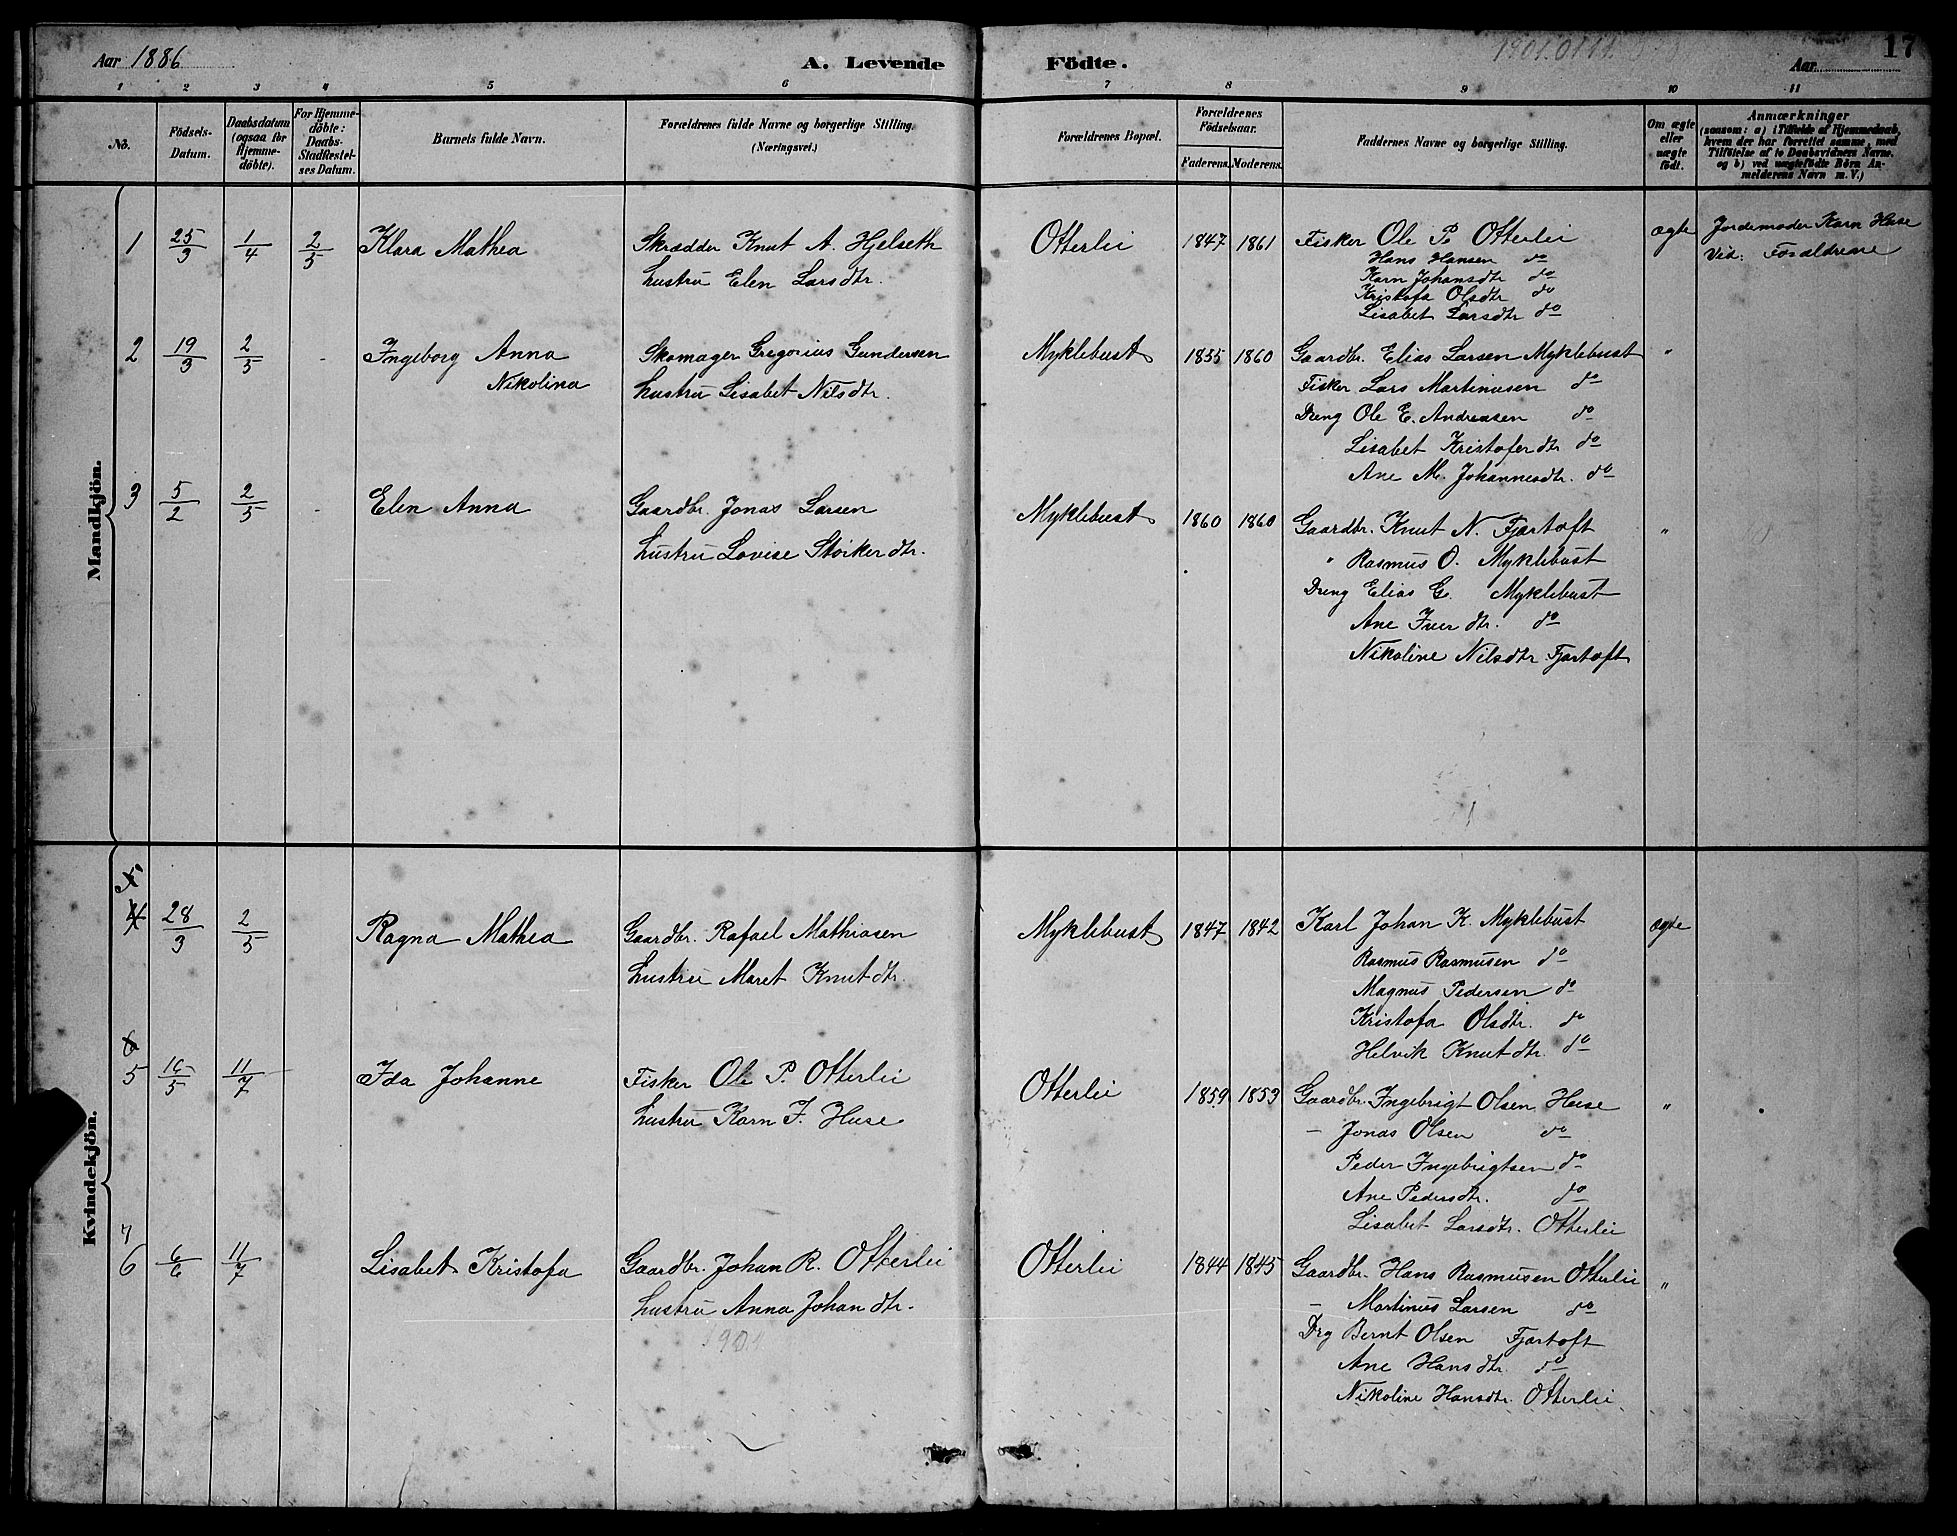 Aar 1886
A. Levende Födte.
1901.0114
Aar
17
1 2 3 4 5 6 7 8 9 10 11
No.
Födsels-
Datum.
Daabsdatum
(ogsaa for
Hjemme-
döbte).
For Hjemme-
döbte:
Daabs-
Stadfæstel-
ses Datum.
Barnets fulde Navn.
Forældrenes fulde Navne og borgerlige Stilling.
(Næringsvei.)
Forældrenes Bopæl.
Forældrenes
Födselsaar.
Faderens. Moderens.
Faddernes Navne og borgerlige Stilling.
Om ægte
eller
uægte
födt.
Anmærkninger
(saasom: a) i Tilfælde af Hjemmedaab,
hvem der har forrettet samme, med
Tilföielse af to Daabsvidners Navne.
og b) ved uægtefödte Börn An-
melderens Navn m. V.)
Mandkjön.
1 25/3 1/4 2/5 Klara Mathea Skrædder Knut A. Hjelseth Otterlei 1847 1861 Fisker Ole P. Otterlei ægte Jordemoder Karn Huse
Hustru Elen Larsdtr. Hans Hansen do Vid: Forældrene
Karn Johansdtr do
Kristofa Olsdtr do
Lisabet Larsdtr do
2 19/3 2/5 - Ingeborg Anna Skomager Gregorius Gundersen Myklebust 1855 1860 Gaardbr. Elias Larsen Myklebust "
Nikolina Hustru Lisabet Nilsdtr. Fisker Lars Martinusen do
Dreng Ole E. Andreasen do
Lisabet Kristoferdtr do
Ane M. Johannesdtr. do
3 5/2 2/5 - Elen Anna Gaardbr. Jonas Larsen Myklebust 1860 1860 Gaardbr. Knut N. Fjærtoft "
Hustru Lovise Störkerdtr. " Rasmus O. Myklebust
Dreng Elias G. Myklebust
Ane Iverdtr. do
Nikoline Nilsdtr Fjærtoft
Kvindekjön.
5
4 28/3 2/5 Ragna Mathea Gaardbr. Rafael Mathiasen Myklebust 1847 1842 Karl Johan K. Myklebust ægte
Hustru Maret Knutdtr. Rasmus Rasmusen do
Magnus Pedersen do
Kristofa Olsdtr. do
Helvik Knutdtr. do
6
5 16/5 11/7 Ida Johanne Fisker Ole P. Otterlei Otterlei 1859 1853 Gaardbr. Ingebrigt Olsen Huse "
Hustru Karn J. Huse - Jonas Olsen do
Peder Ingebrigtsen do
Ane Pedersdtr. do
Lisabet Larsdtr. Otterlei
7
6 6/6 11/7 Lisabet Kristofa Gaardbr. Johan R. Otterlei Otterlei 1844 1845 Gaardbr. Hans Rasmusen Otterlei "
Hustru Anna Johandtr. - Martinus Larsen do
1901 Drg Bernt Olsen Fjærtoft
Ane Hansdtr. do
Nikoline Hansdtr. Otterlei